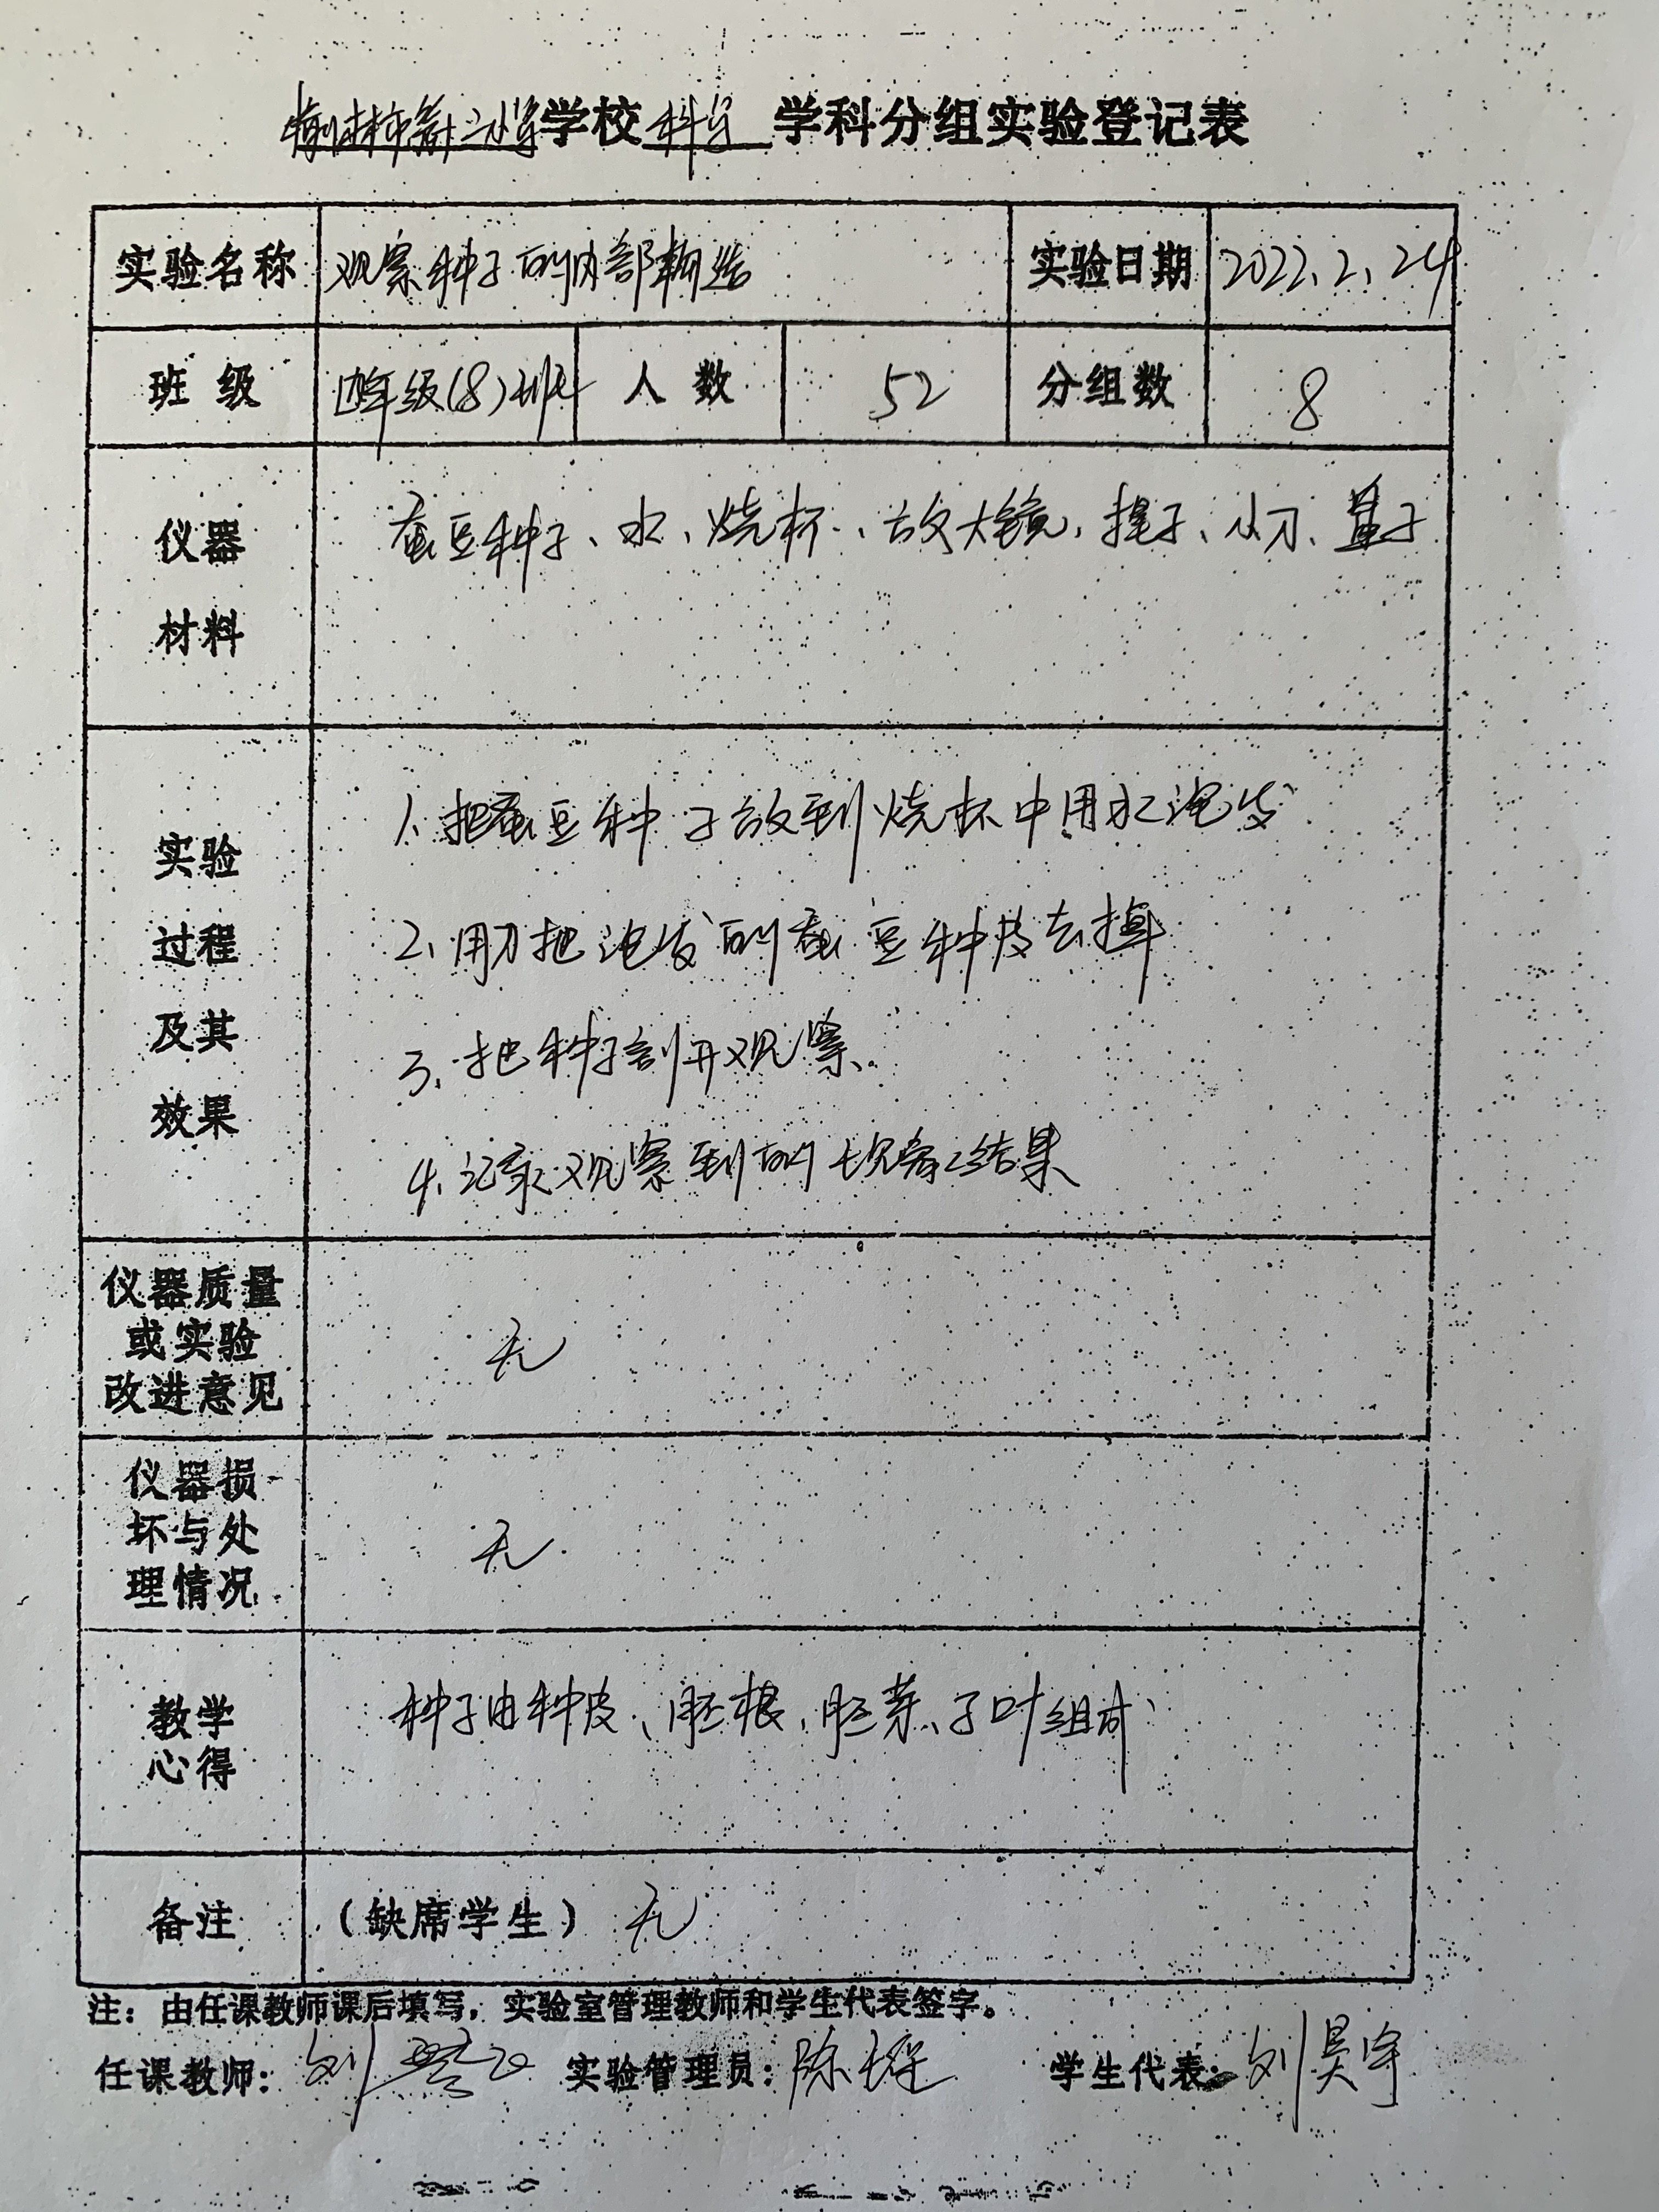 榆林市第 小学学校 科学 学科分组实验登记表
实验名称 观察种子的内部构造 实验日期 2022.2.24
班 级 四年级(8)班 人 数 52 分组数 8
仪器
材料
蚕豆种子、水、烧杯、放大镜、镊子、小刀、盘子
实验
过程
及其
效果
1、把蚕豆种子放到烧杯中用水泡发
2、用刀把泡发的蚕豆种皮去掉
3、把种子剖开观察
4、记录观察到的 结果
仪器质量
或实验
改进意见
无
仪器损
坏与处
理情况
无
教学
心得
种子由种皮、胚根、胚芽、子叶组成
备注 (缺席学生) 无
注：由任课教师课后填写，实验室管理教师和学生代表签字。
任课教师: 刘 实验管理员: 陈 学生代表: 刘昊宇